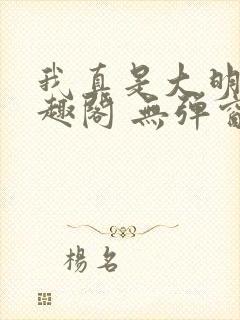 我真是大明
趣閣 無彈窗
楊名